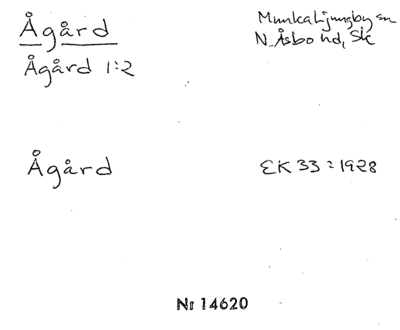 Ågård
Munkaljungby sn
N. Åsbo hd, Sk
Ågård 1:2
Ågård
EK 33 = 1928
Nr 14620